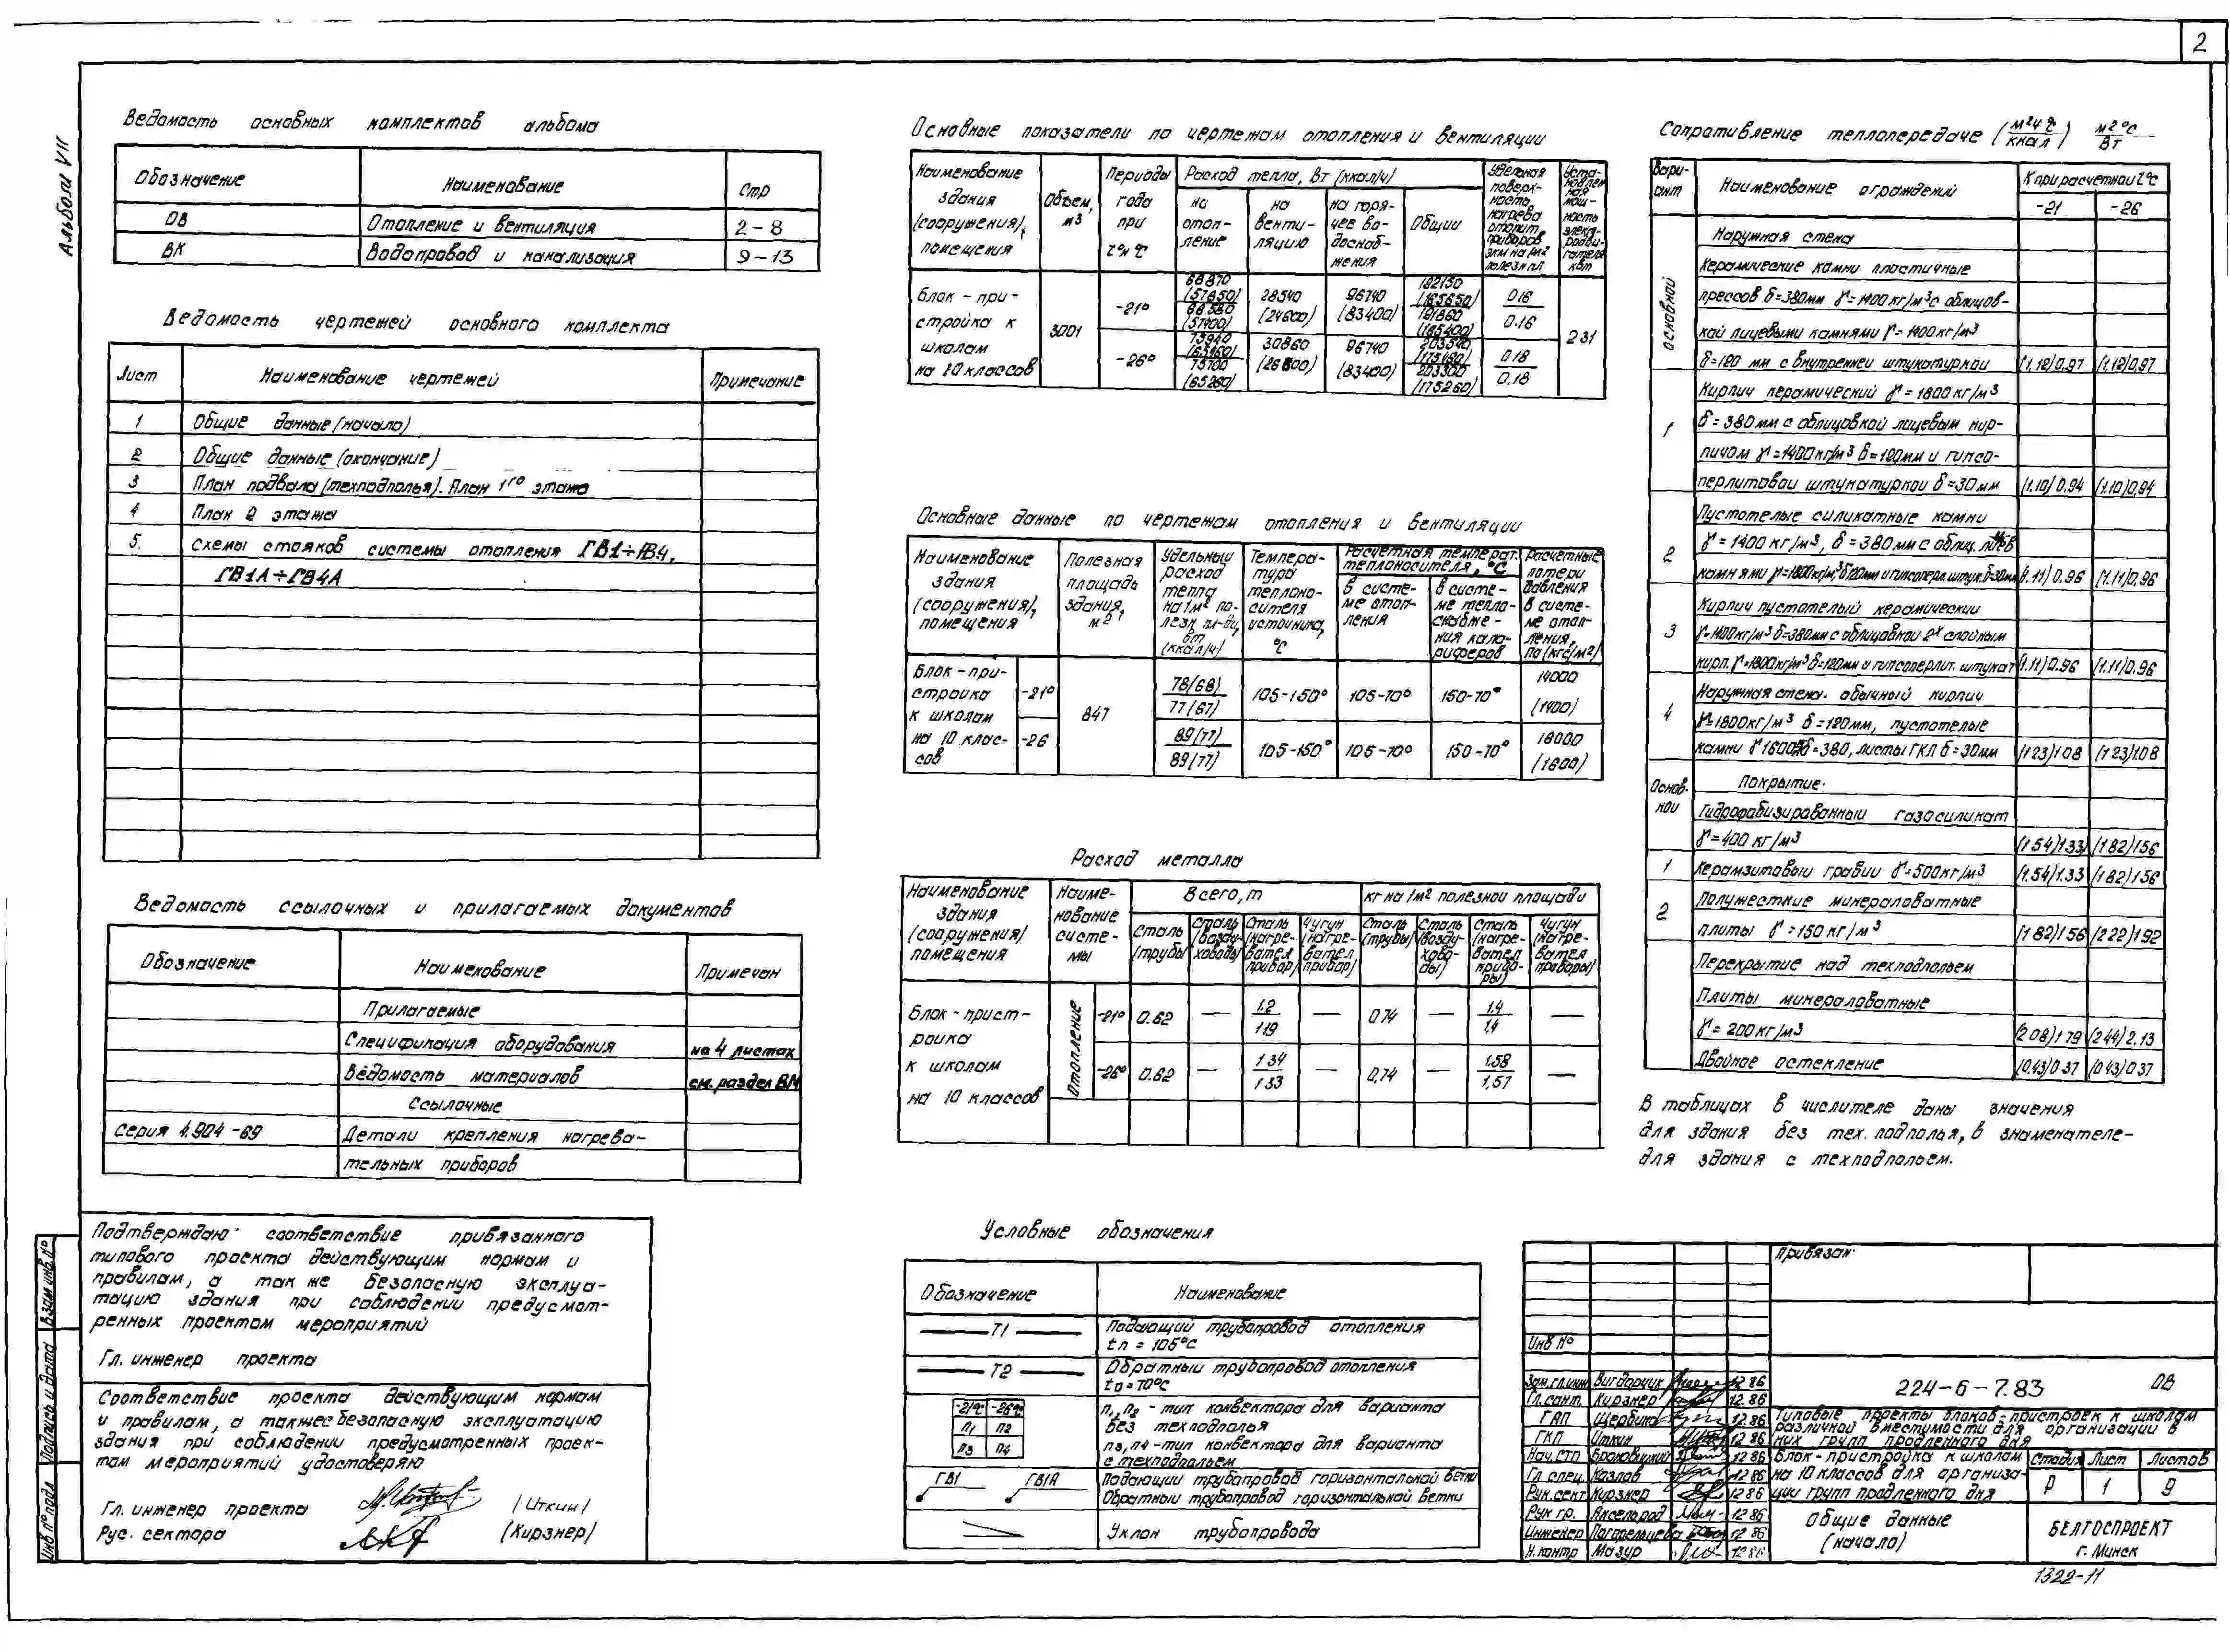 2
Альбом VII
Ведомость основных комплектов альбома
Обозначение Наименование Стр
ОВ Отопление и вентиляция 2-8
ВК Водопровод и канализация 9-13
Ведомость чертежей основного комплекта
Лист Наименование чертежей Примечание
1 Общие данные (начало)
2 Общие данные (окончание)
3 План подвала (техподполья). План 1го этажа
4 План 2 этажа
5. Схемы стояков системы отопления ГВ1÷ГВ4,
ГВ1А÷ГВ4А
Ведомость ссылочных и прилагаемых документов
Обозначение Наименование Примечан
Прилагаемые
Спецификация оборудования на 4 листах
Ведомость материалов см. раздел ВМ
Ссылочные
Серия 4.904-69 Детали крепления нагрева-
тельных приборов
Подтверждаю соответствие привязанного
типового проекта действующим нормам и
правилам, а так же безопасную эксплуа-
тацию здания при соблюдении предусмот-
ренных проектом мероприятий
Гл. инженер проекта
Соответствие проекта действующим нормам
и правилам, а также безопасную эксплуатацию
здания при соблюдении предусмотренных проек-
том мероприятий удостоверяю
Гл. инженер проекта (Иткин)
Рус. сектора (Кирзнер)
Инв № подл Подпись и дата Взам инв. №
Основные показатели по чертежам отопления и вентиляции
Наименование здания (сооружения), помещения
Объем, м3
Периоды года при tн °С
Расход тепла, Вт (ккал/ч)
на отоп-ление
на венти-ляцию
на горя-чее во-доснаб-жения
Общий
Удельная поверх-ность нагрева отопит. приборов экм на 1м2 полезн пл
Уста-новлен ная мощ-ность электродви-гателя квт
Блок-при-стройка к школам на 10 классов
3001
-21° 68870 (57650) 68580 (57400) 28540 (24600) 96740 (83400) (165650) 191860 (165400) 0.16 2.31
-26° 30860 96740 (83400) 203300 (175260) 0.18 0.18
Основные данные по чертежам отопления и вентиляции
Наименование здания (сооружения), помещения
Полезная площадь здания, м2
Удельный расход тепла на 1м2 по-лезн. пл-ди, вт (ккал/ч)
Темпера-тура теплоно-сителя источника, °С
Расчетная температ. теплоносителя, °С
в систе-ме отоп-ления
в систе-ме тепло-снабже-ния кало-риферов
Расчетные потери давления в систе-ме отоп-ления, Па (кгс/м2)
Блок-при-стройка к школам на 10 клас-сов
847
-21° 78(68) 77(67) 105-150° 105-70° 150-70° 14000 (1400)
-26 89(77) 89(77) 105-150° 105-70° 150-70° (1600)
Расход металла
Наименование здания (сооружения) помещения
Наиме-нование систе-мы
Всего, т
кг на 1м2 полезной площади
Сталь (трубы) Сталь (возду-ховоды) Сталь (нагре-вател прибор) Чугун (нагре-вател прибор)
Сталь (трубы) Сталь (возду-хово-ды) Сталь (нагре-вател прибо-ры) Чугун (нагре-вател приборы)
Блок-прист-ройка к школам на 10 классов
Отопление
-21° 0.62 — 1.2 1.19 — 0.74 — 1.4 1.4 —
-26° 0.62 — 1.34 1.33 — 0,74 — 1.58 1,57 —
Условные обозначения
Обозначение Наименование
Т1 Подающий трубопровод отопления
tп = 105°С
Т2 Обратный трубопровод отопления
tо = 70°С
-21°С -26°С п1, п2 - тип конвектора для варианта
П1 П2 без техподполья
П3 П4 п3, п4 - тип конвектора для варианта
с техподпольем
ГВ1 ГВ1А Подающий трубопровод горизонтальной ветки
Обратный трубопровод горизонтальной ветки
Уклон трубопровода
Сопротивление теплопередаче (м2ч°С/ккал) м2°С/Вт
Вари-ант Наименование ограждений К при расчетной t°С
-21 -26
Основной
Наружная стена
Керамические камни пластичные
прессов δ=380мм γ=1400кг/м3 с облицов-
кой лицевыми камнями γ=1400кг/м3
δ=120 мм с внутренней штукатуркой (1.12)0.97 (1.12)0.97
1
Кирпич керамический γ=1800кг/м3
δ=380мм с облицовкой лицевым кир-
пичом γ=1400кг/м3 δ=120мм и гипсо-
перлитовой штукатуркой δ=30мм (1.10)0.94 (1.10)0.94
2
Пустотелые силикатные камни
γ=1400кг/м3, δ=380мм с облиц. лицев
камнями γ=1800кг/м3 δ120мм и гипсоперл. штук. δ=30мм (1.11)0.96 (1.11)0.96
3
Кирпич пустотелый керамический
γ=1400кг/м3 δ=380мм с облицовкой 2х слойным
кирп. γ=1800кг/м3 δ=120мм и гипсоперлит. штукат (1.11)0.96 (1.11)0.96
4
Наружная стена. обычный кирпич
γ=1800кг/м3 δ=120мм, пустотелые
камни γ1600 δ=380, листы ГКЛ δ=30мм (1 23)1.08 (1 23)1.08
Основ-ной
Покрытие.
Гидрофобизированный газосиликат
γ=400 кг/м3 (1 54)1.33 (1 82)1.56
1 Керамзитовый гравий γ=500кг/м3 (1.54)1.33 (1 82)1.56
2 Полужесткие минераловатные
плиты γ=150 кг/м3 (1 82)1 56 (2 22)1 92
Перекрытие над техподпольем
Плиты минераловатные
γ=200кг/м3 (2 08)1 79 (2 44)2.13
Двойное остекление (0.43)0 37 (0 43)0 37
В таблицах в числителе даны значения
для здания без тех. подполья, в знаменателе-
для здания с техподпольем.
Привязан
Инв №
Зам.гл.инж Вигдорчик 12 86
Гл.сант. Кирзнер 12.86
ГАП Щербина 12.86
ГКП Иткин 12 86
Нач. СТП 12 86
Гл спец Козлов 12 86
Рук.сект Кирзнер 12 86
Рук гр. Аксельрод 12 86
Инженер 12 86
Н.контр Мазур 12 86
224-6-7.83 ОВ
Типовые проекты блоков-пристроек к школам
различной вместимости для организации в
них групп продленного дня
Блок-пристройка к школам
на 10 классов для организа-
ции групп продленного дня
Стадия Лист Листов
Р 1 9
Общие данные
(начало)
БЕЛГОСПРОЕКТ
г. Минск
1322-11